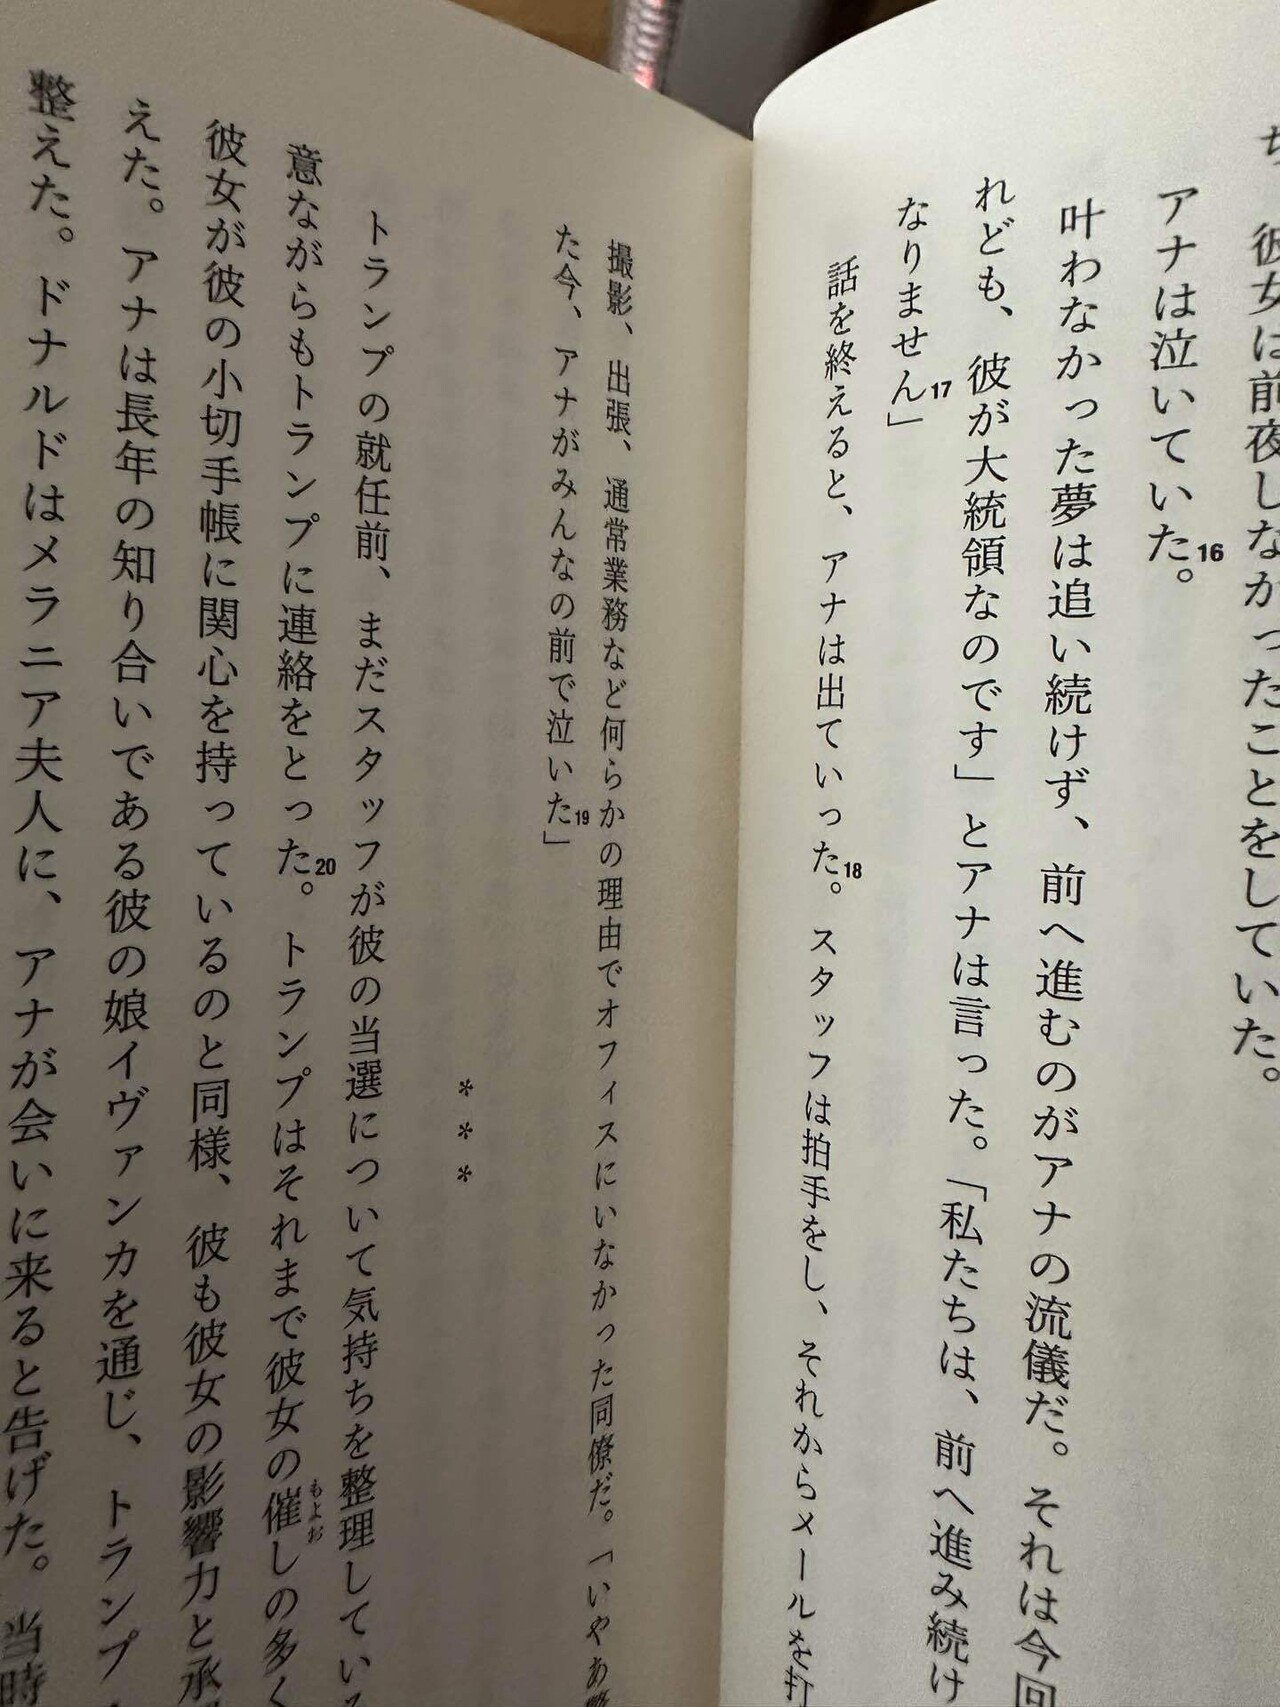 彼女は前夜しなかったことをしていた。
アナは泣いていた16。
叶わなかった夢は追い続けず、前へ進むのがアナの流儀だ。それは今回
れども、彼が大統領なのです」とアナは言った。「私たちは、前へ進み続け
なりません17」
話を終えると、アナは出ていった18。スタッフは拍手をし、それからメールを打
撮影、出張、通常業務など何らかの理由でオフィスにいなかった同僚だ。「いやあ
た今、アナがみんなの前で泣いた19」
＊＊＊
トランプの就任前、まだスタッフが彼の当選について気持ちを整理してい
意ながらもトランプに連絡をとった20。トランプはそれまで彼女の催しの多く
もよお
彼女が彼の小切手帳に関心を持っているのと同様、彼も彼女の影響力と承
えた。アナは長年の知り合いである彼の娘イヴァンカを通じ、トランプ
整えた。ドナルドはメラニア夫人に、アナが会いに来ると告げた。当時